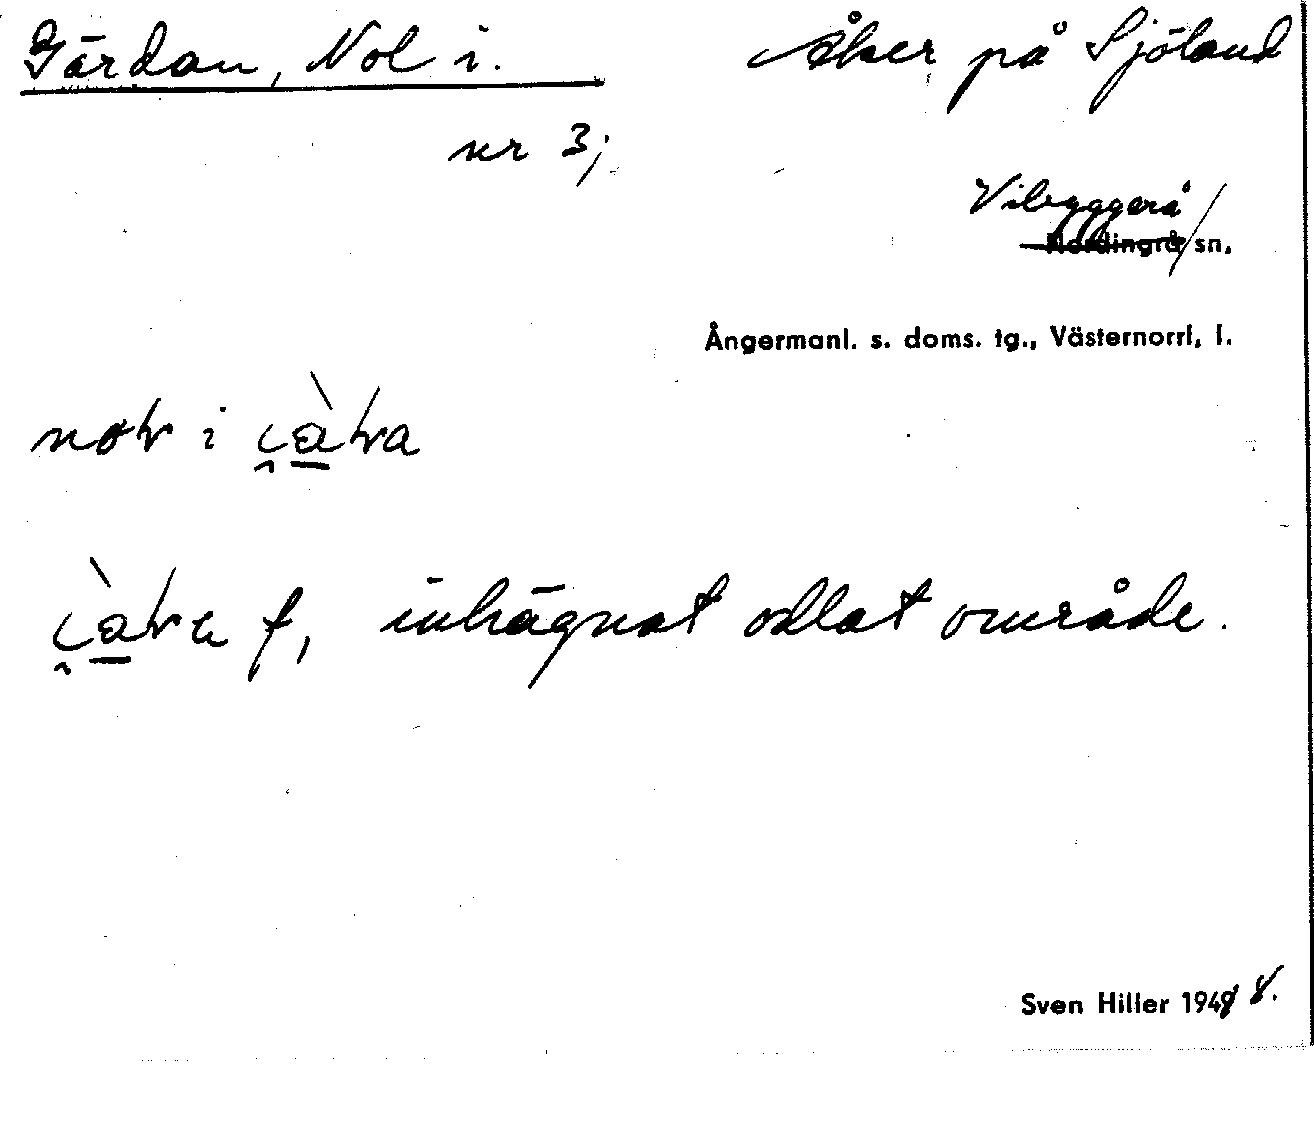 Gärdan, Nol i. Åker på Sjöland
nr 3;
Vibyggerå
Nordingrå sn.
Ångermanl. s. doms. tg., Västernorrl. l.
i
f, inhägnat odlat område.
Sven Hiller 1949 8.